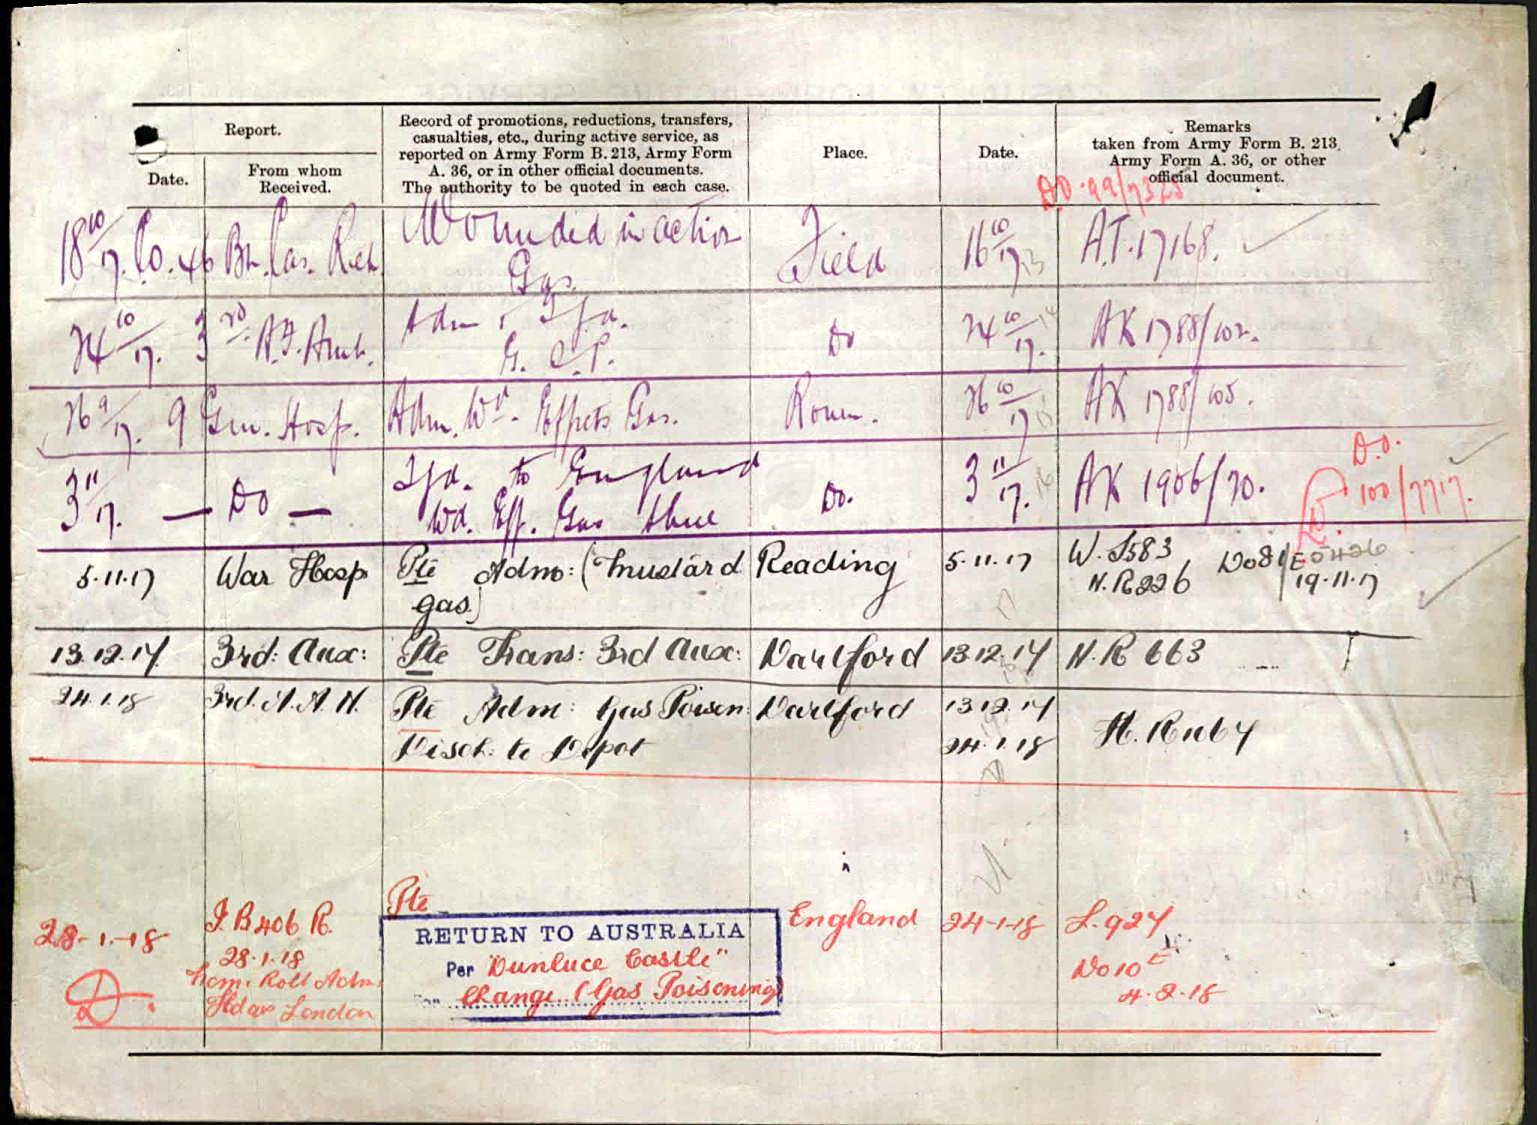 Report.
Date.
From whom
Received.
Record of promotions, reductions, transfers,
casualties, etc., during active service, as
reported on Army Form B. 213, Army Form
A. 36, or in other official documents.
The authority to be quoted in each case.
Place.
Date.
Remarks
taken from Army Form B. 213,
Army Form A. 36, or other
official document.
18 10/17. Co. 46 Bn. Wounded in action Field 16 10/17 A.T. 17168.
Gas.
24 10/17. 3rd A.F. Amb. Adm & Tfd. Do 24 10/17. AK 1788/102.
26 9/17. 9 Gen. Hosp. Adm. Wd. Effects Gas. Rouen. 26 10/17 AK 1788/105.
D.O.
100/7717.
3 11/17. — Do — Tfd. to England Do. 3 11/17. AK 1906/70.
Wd. Eff. Gas
5.11.17 War Hosp Pte Adm: (Mustard Reading 5.11.17 W. 3583
gas) N.R226 19.11.17
13.12.17 3rd: Aux: Pte Trans: 3rd Aux: Dartford 13.12.17 N.R 663
24.1.18 3rd. A.A.H. Pte Adm: Gas Poison: Dartford 13.12.17
Disch. to Depot 24.1.18
Pte
28-1-18 B406 R. England 24-1-18 L.927
28.1.18
RETURN TO AUSTRALIA
Per "Dunluce Castle"
For Change. (Gas Poisoning)
Nom. Roll Adm.
Hdqrs London
No 10
4.2.18
D.